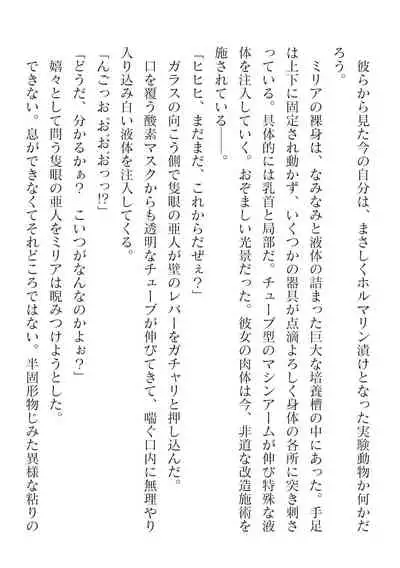 彼らから見た今の自分は、まさしくホルマリン漬けとなった実験動物か何かだ
ろう。
ミリアの裸身は、なみなみと液体の詰まった巨大な培養槽の中にあった。手足
は上下に固定され動かず、いくつかの器具が点滴よろしく身体の各所に突き刺さ
っている。具体的には乳首と局部だ。チューブ型のマシンアームが伸び特殊な液
体を注入していく。おぞましい光景だった。彼女の肉体は今、非道な改造施術を
施されている――。
「ヒヒヒ、まだまだ、これからだぜぇ？」
ガラスの向こう側で隻眼の亜人が壁のレバーをガチャリと押し込んだ。
口を覆う酸素マスクからも透明なチューブが伸びてきて、喘ぐ口内に無理やり
入り込み白い液体を注入してくる。
「んごっお、お、お、おっっ!?」
「どうだ、分かるかぁ？　こいつがなんなのかよぉ？」
嬉々として問う隻眼の亜人をミリアは睨みつけようとした。
できない。息ができなくてそれどころではない。半固形物じみた異様な粘りの